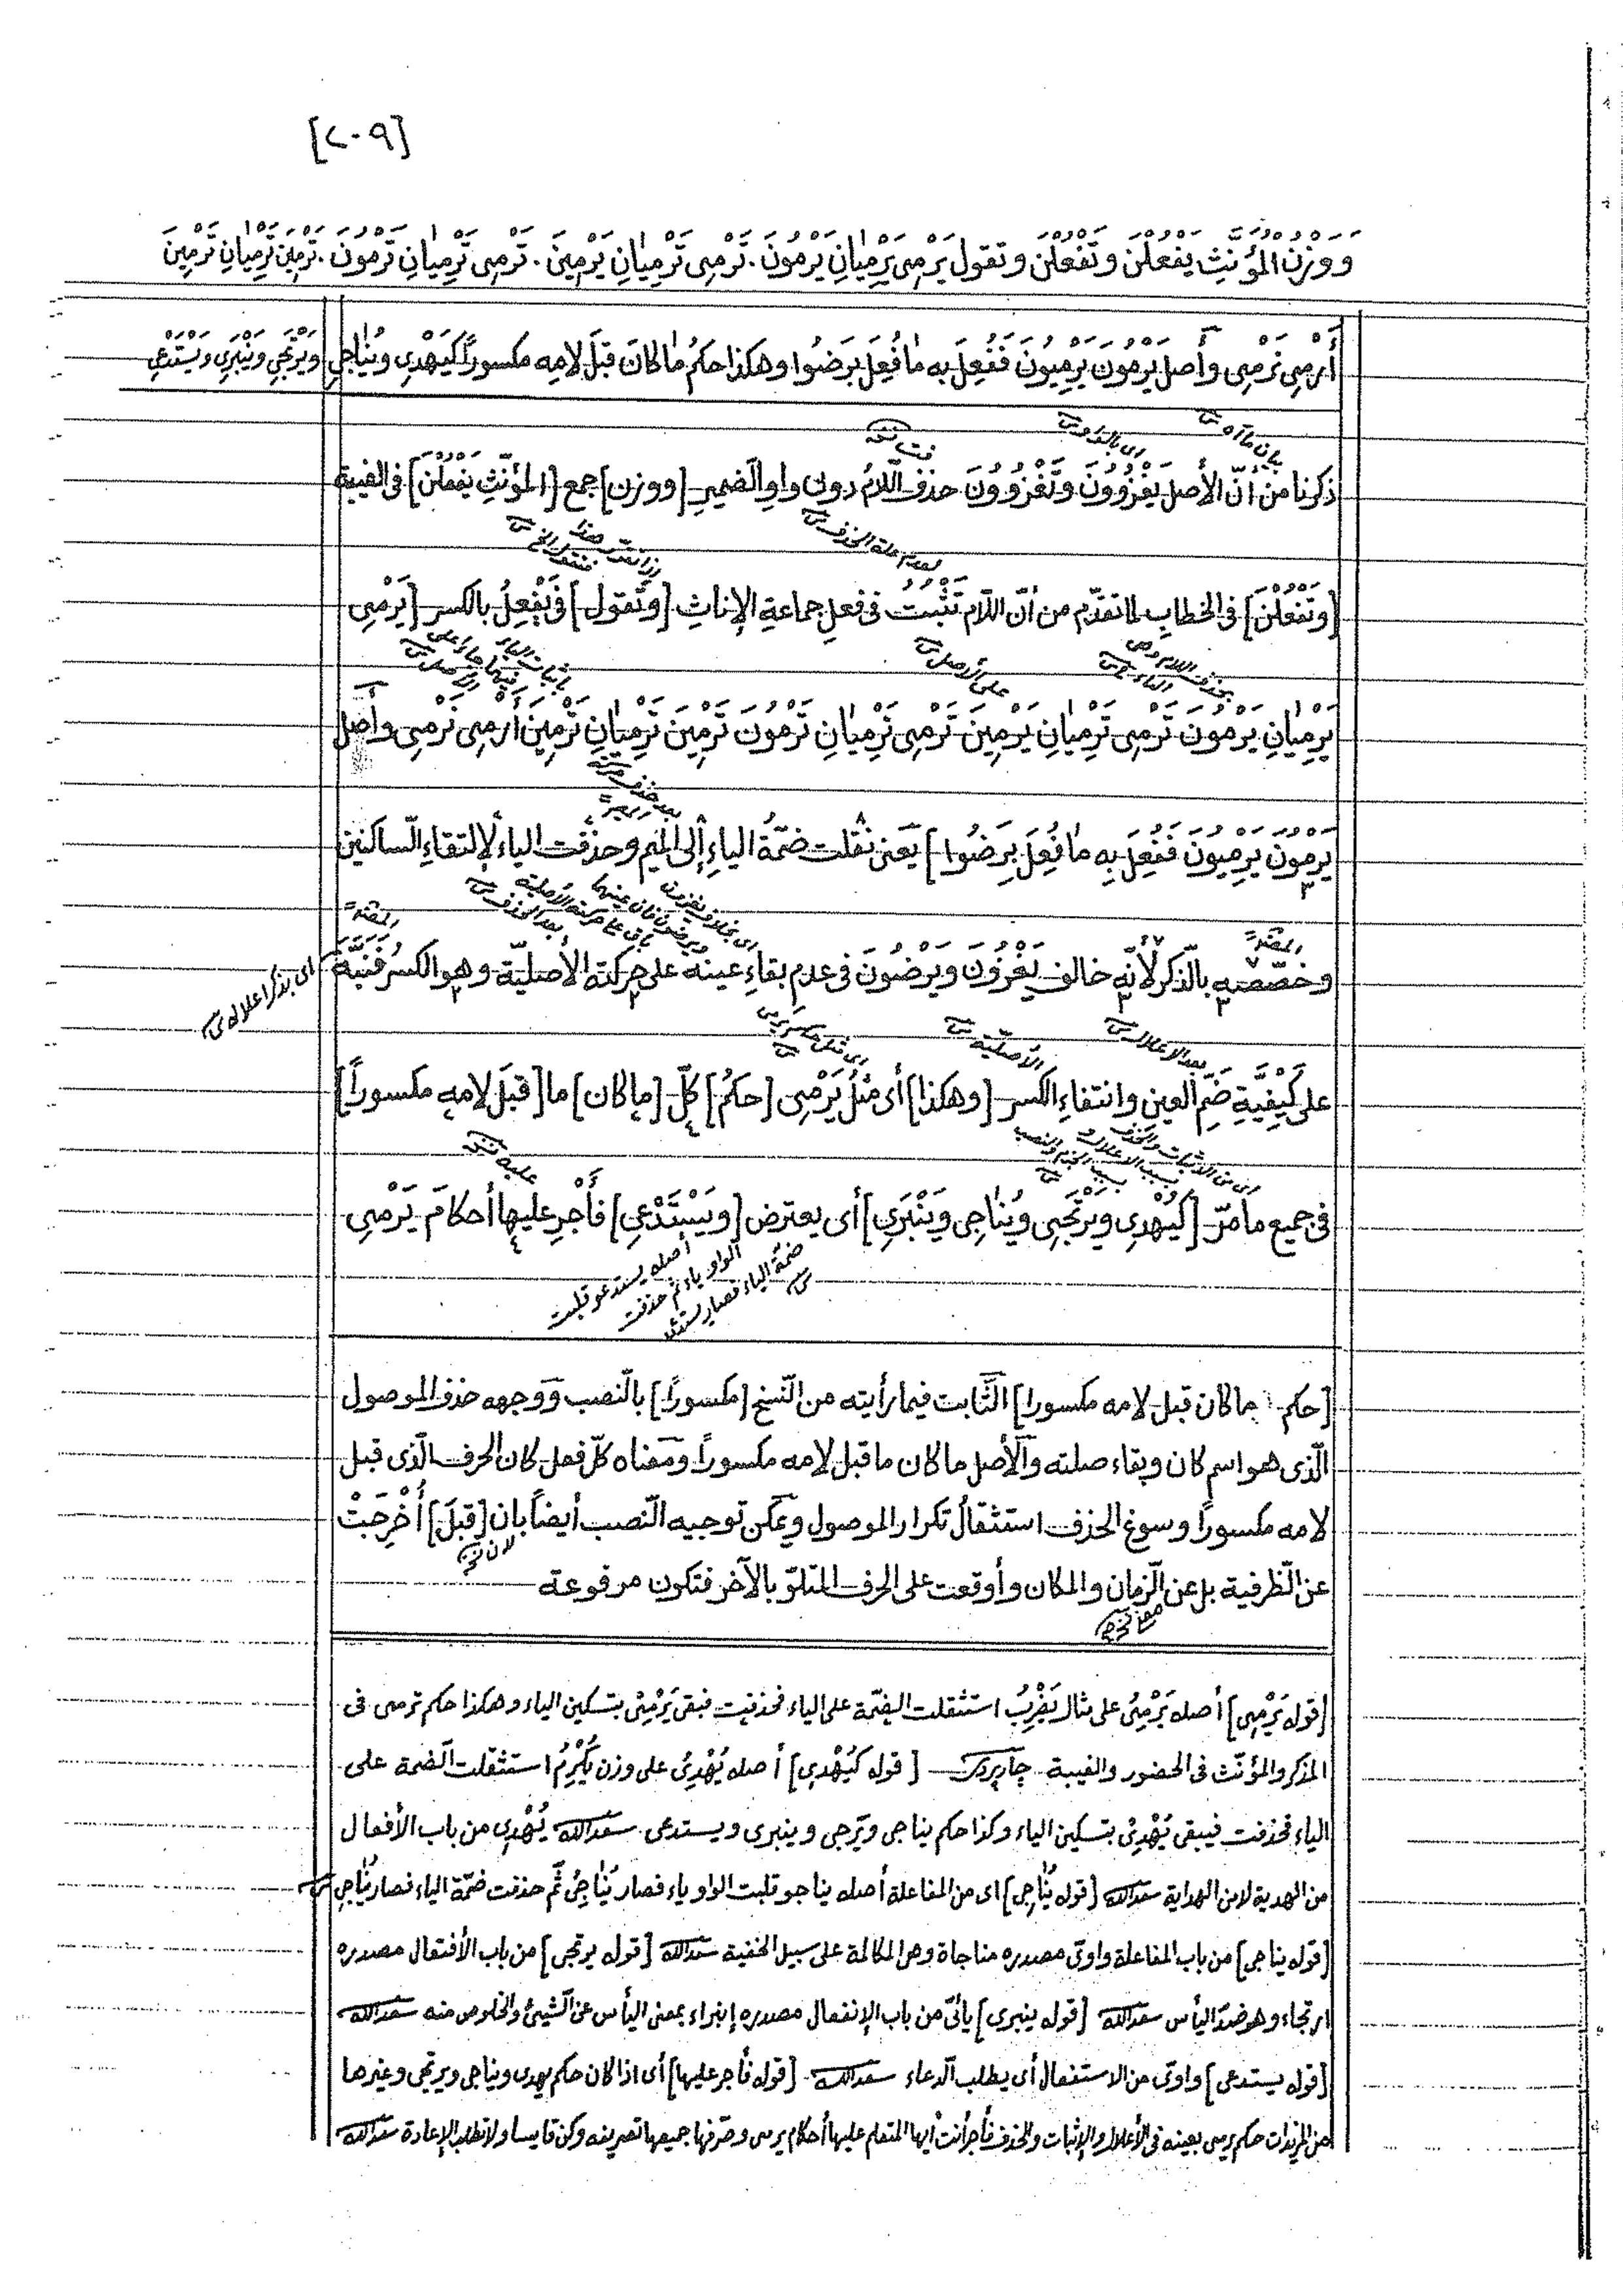 [٢٠٩]
وَوَزْنُ الْمُؤَنَّثِ يَفْعُلْنَ وَتَفْعُلْنَ وتقول يَرْمِى يَرْمِيٰانِ يَرْمُونَ. تَرْمِى تَرْمِيٰانِ يَرْمِينَ. تَرْمِى تَرْمِيٰانِ تَرْمُونَ. تَرْمِينَ تَرْمِيٰانِ تَرْمِينَ
أَرْمِى نَرْمِى وأَصلُ يَرْمُونَ يَرْمِيُونَ فَفُعِلَ بِه مٰا فُعِلَ بِرَضُوا وهكذا حكمُ مٰا كانَ قبلَ لامِه مكسوراً كَيَهْدِى ويُنٰاجِى وَيَرْتَجِى وَيَنْبَرِى وَيَسْتَدْعِى
بيان ما س
اى بالواو س
ذكرنا من أنّ الأصل يَغْزُوُونَ وتَغْزُوُونَ حذف اللّامُ دون واوِ الضميرِ [ووزن] جمع [المؤنّثِ يَفْعُلْنَ] فى الغيبة
لعدم علة الحذف س
[وتَفْعُلْنَ] فى الخطابِ لما تقدّم من أنّ اللّام تَثْبُتُ فى فعلِ جماعةِ الإناثِ [وتقول] فى يَفْعِلُ بالكسر [يَرْمِى
على الأصل س
يَرْمِيٰانِ يَرْمُونَ تَرْمِى تَرْمِيٰانِ يَرْمِينَ تَرْمِى تَرْمِيٰانِ تَرْمُونَ تَرْمِينَ تَرْمِيٰانِ تَرْمِينَ أَرْمِى نَرْمِى وأصل
يَرْمُونَ يَرْمِيُونَ فَفُعِلَ بِه مٰا فُعِلَ بِرَضُوا] يَعنى نُقلت ضمّةُ الياءِ إلى الميم وحذفت الياءُ لإلتقاءِ السّاكنين
اى بخلاف يغزون
ويرضون فان عينهما
باق على حركته الأصلية
بعد الحذف س
وخصّصه بالذّكر لأنّه خالف يَغْزُونَ ويَرْضُونَ فى عدم بقاءِ عينه على حركته الأصليّة وهو الكسرُ فَنَبَّهَ
اى بذكر اعلاله س
بعد الاعلال س
الأصلية س
على كَيفِيَّةِ ضَمِّ العينِ وانتفاءِ الكسر [وهكذا] أى مثلُ يَرْمِى [حكمُ] كلّ [ما كان] ما [قبلَ لامِه مكسوراً]
اى من الاثبات والحذف
بسبب الاعلال و
بسبب الجزم والنصب
فى جميع ما مرّ [كَيَهْدِى ويَرْتَجِى ويُنٰاجِى ويَنْبَرِى] أى يعترض [ويَسْتَدْعِى] فأَجْرِ عليها أحكامَ يَرْمِى
أصله يستدعو قلبت
الواو ياء ثم حذفت
ضمة الياء فصار يستدعى
س
[حكم ما كان قبل لامه مكسورا] الثّابت فيما رأيته من النّسخ [مكسوراً] بالنّصب ووجهه حذف الموصول
الّذى هو اسم كان وبقاء صلته والأصل ما كان ما قبل لامه مكسوراً ومعناه كلّ فعل كان الحرف الّذى قبل
لامه مكسوراً وسوغ الحذف استثقالُ تكرار الموصول ويمكن توجيه النّصب أيضاً بان [قبلَ] أُخْرِجَتْ
عن الظّرفية بل عن الزّمان والمكان وأوقعت على الحرف المتلوّ بالآخر فتكون مرفوعة
[قوله يَرْمِى] أصله يَرْمِىُ على مثال يَضْرِبُ استثقلت الضمّة على الياء فحذفت فبقى يَرْمِىْ بتسكين الياء وهكذا حكم ترمى فى
المذكر والمؤنّث فى الحضور والغيبة چارپردى [قوله كَيُهْدِى] أصله يُهْدِىُ على وزن يُكْرِمُ استثقلت الضمة على
الياء فحذفت فيبقى يُهْدِىْ بتسكين الياء وكذا حكم يناجى ويَرتجى وينبرى ويستدعى سعدالله يُهْدِى من باب الأفعال
من الهدية لا من الهداية سعدالله [قوله يُنٰاجِى] اى من المفاعلة أصله يناجو قلبت الواو ياء فصار يُنٰاجِىُ ثمّ حذفت ضمّة الياء فصار يُنٰاجِى س
[قوله يناجى] من باب المفاعلة واوىّ مصدره مناجاة وهى المكالمة على سبيل الخفية سعدالله [قوله يرتجى] من باب الأفتعال مصدره
ارتجاء وهو ضدّ اليأس سعدالله [قوله ينبرى] يائىّ من باب الإنفعال مصدره إنبراء بمعنى اليأس عن الشّيئ والخلوص منه سعدالله
[قوله يستدعى] واوىّ من الاستفعال أى يطلب الدّعاء سعدالله [قوله فأجر عليها] أى اذا كان حكم يهدى ويناجى ويرتجى وغيرها
من المزيدات حكم يرمى بعينه فى الأعلال والإثبات والحذف فأجر أنت أيها المتعلم عليها أحكام يرمى وصرّفها جميعها تصريفه وكن قايسا ولا تطلب الإعادة سعدالله